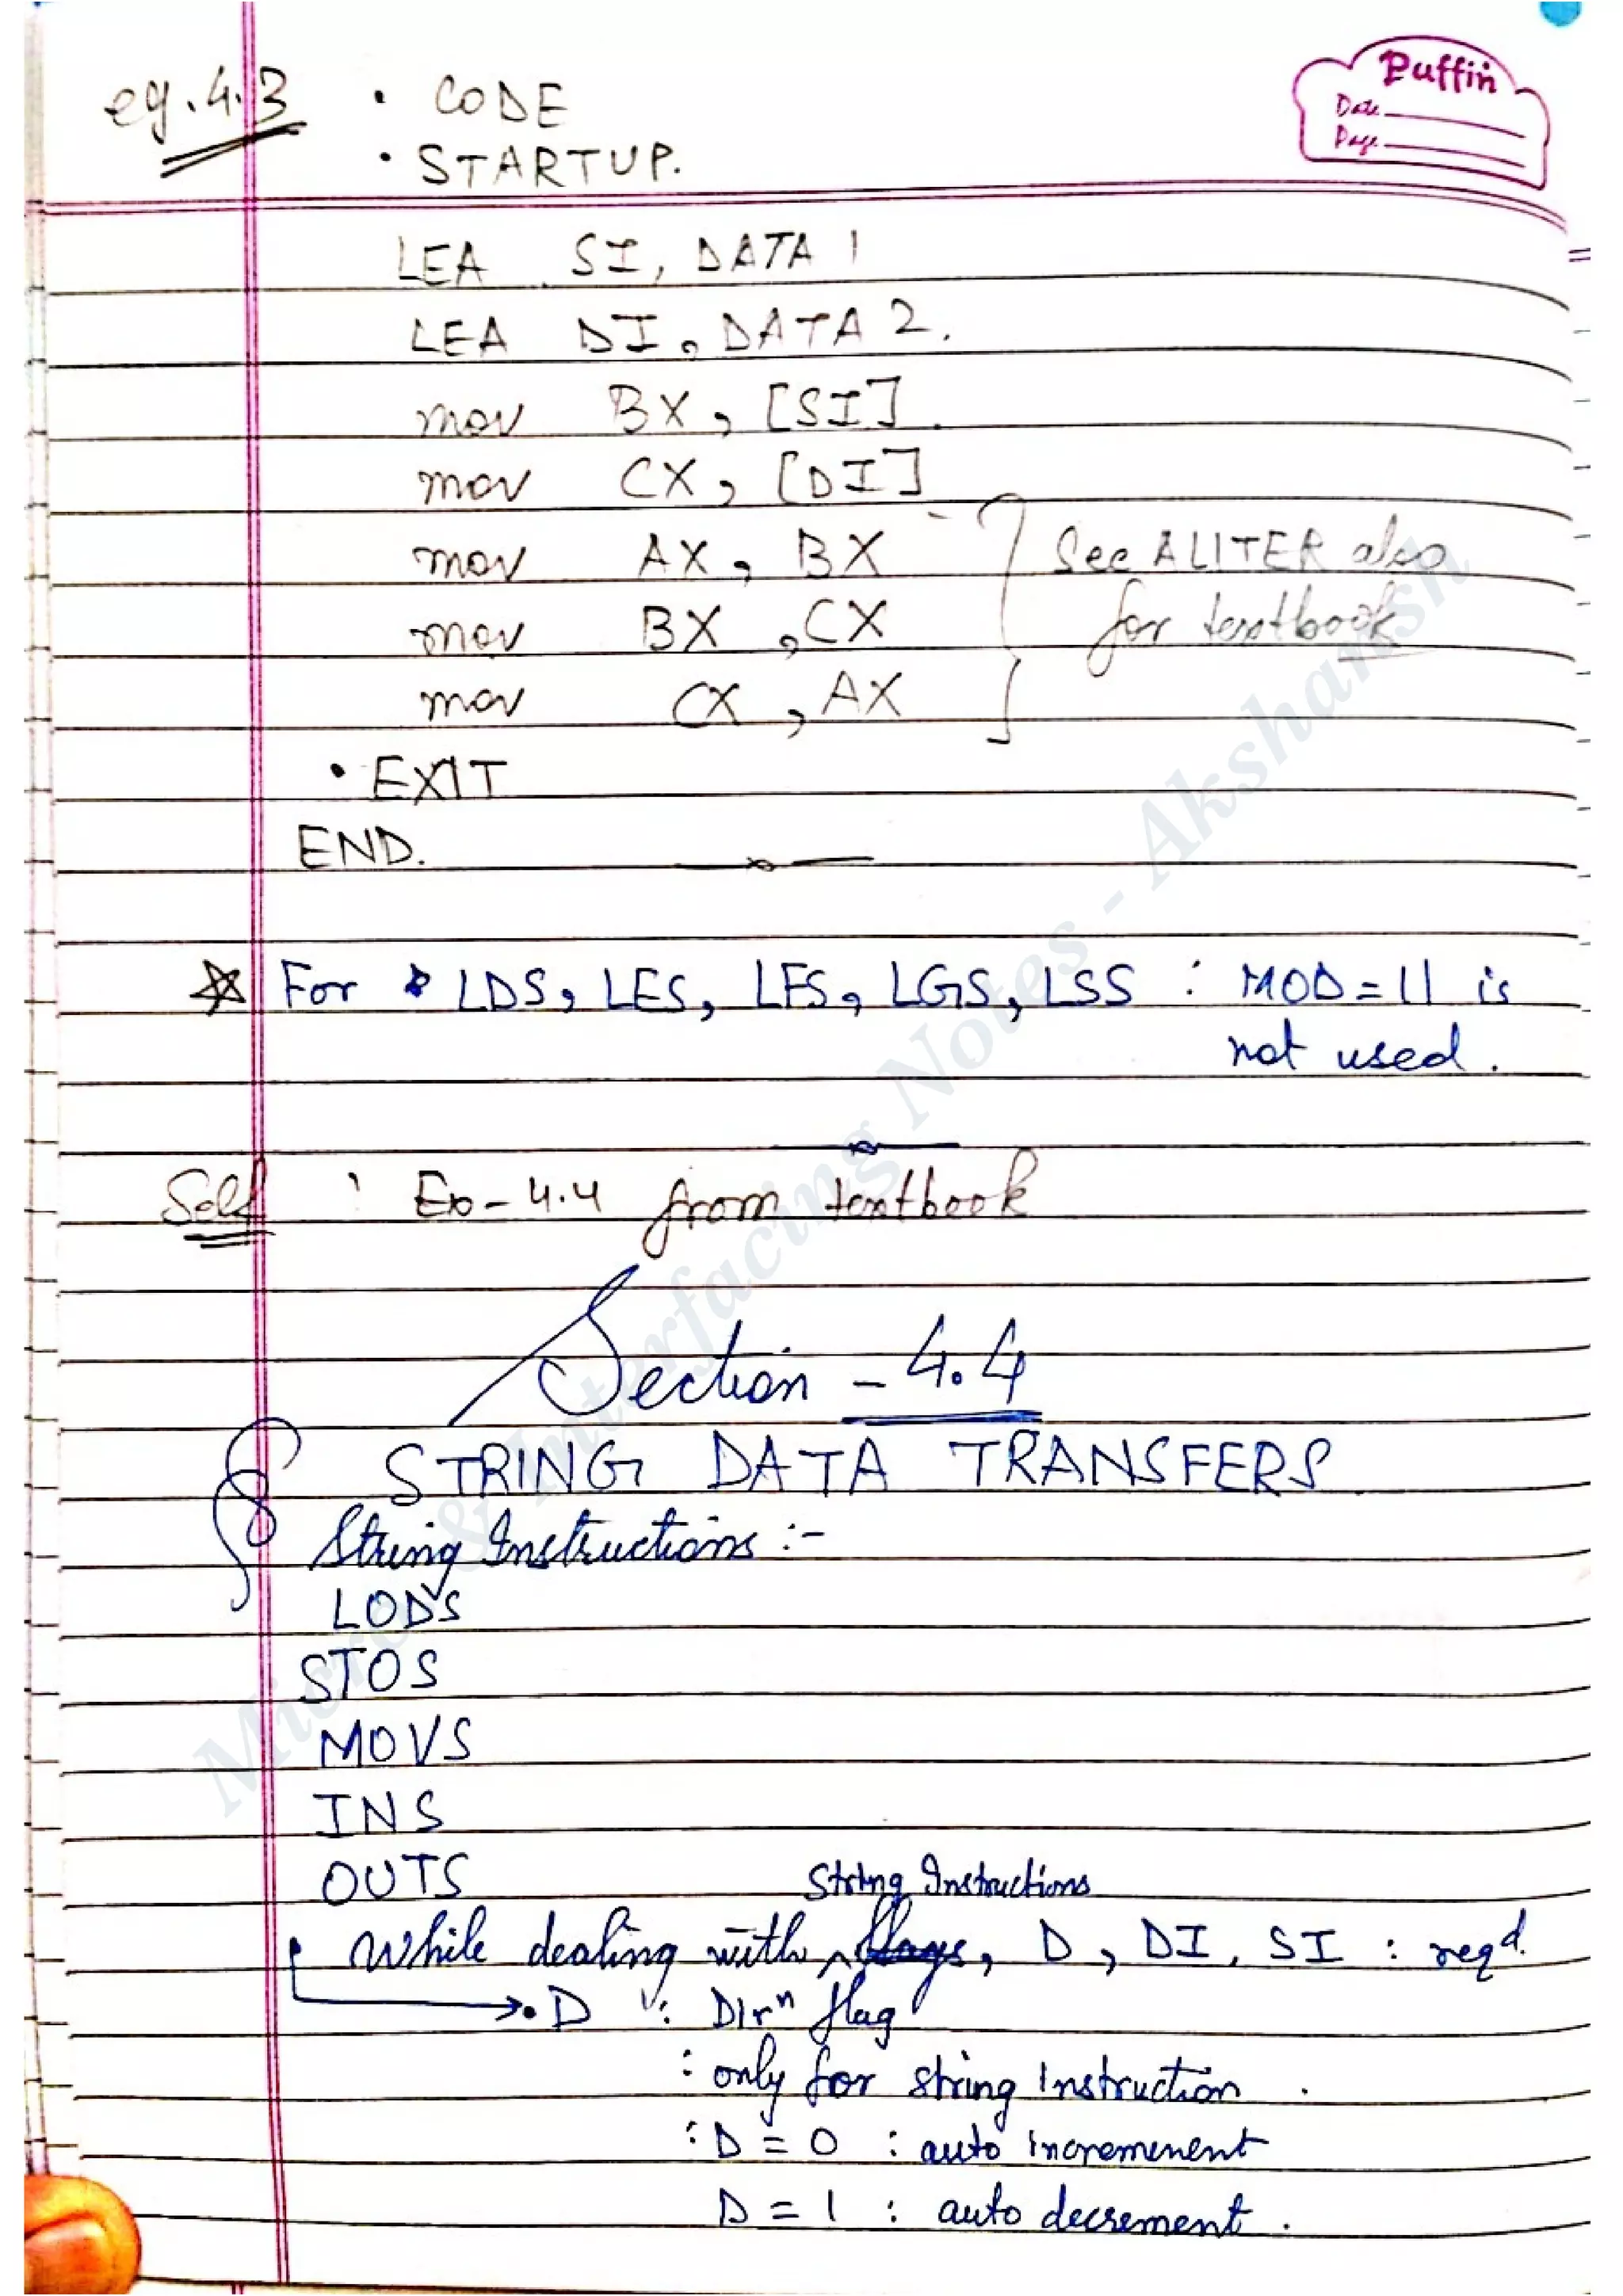 eg. 4.3 • CODE
• STARTUP.
Puffin
Date
Page
LEA SI, DATA 1
LEA DI, DATA 2.
mov BX, [SI].
mov CX, [DI]
mov AX, BX
mov BX, CX
mov CX, AX
See ALITER also
for textbook
• EXIT
END.
For LDS, LES, LFS, LGS, LSS : MOD = 11 is
not used.
Self : Ex-4.4 from textbook
Section - 4.4
STRING DATA TRANSFERS
String Instructions :-
LODS
STOS
MOVS
INS
OUTS
String Instructions
While dealing with ^ flags, D, DI, SI : reqd.
→• D : Dirⁿ flag
: only for string instruction.
: D = 0 : auto incremenent
D = 1 : auto decrement.
Micro & Interfacing Notes - Akshansh